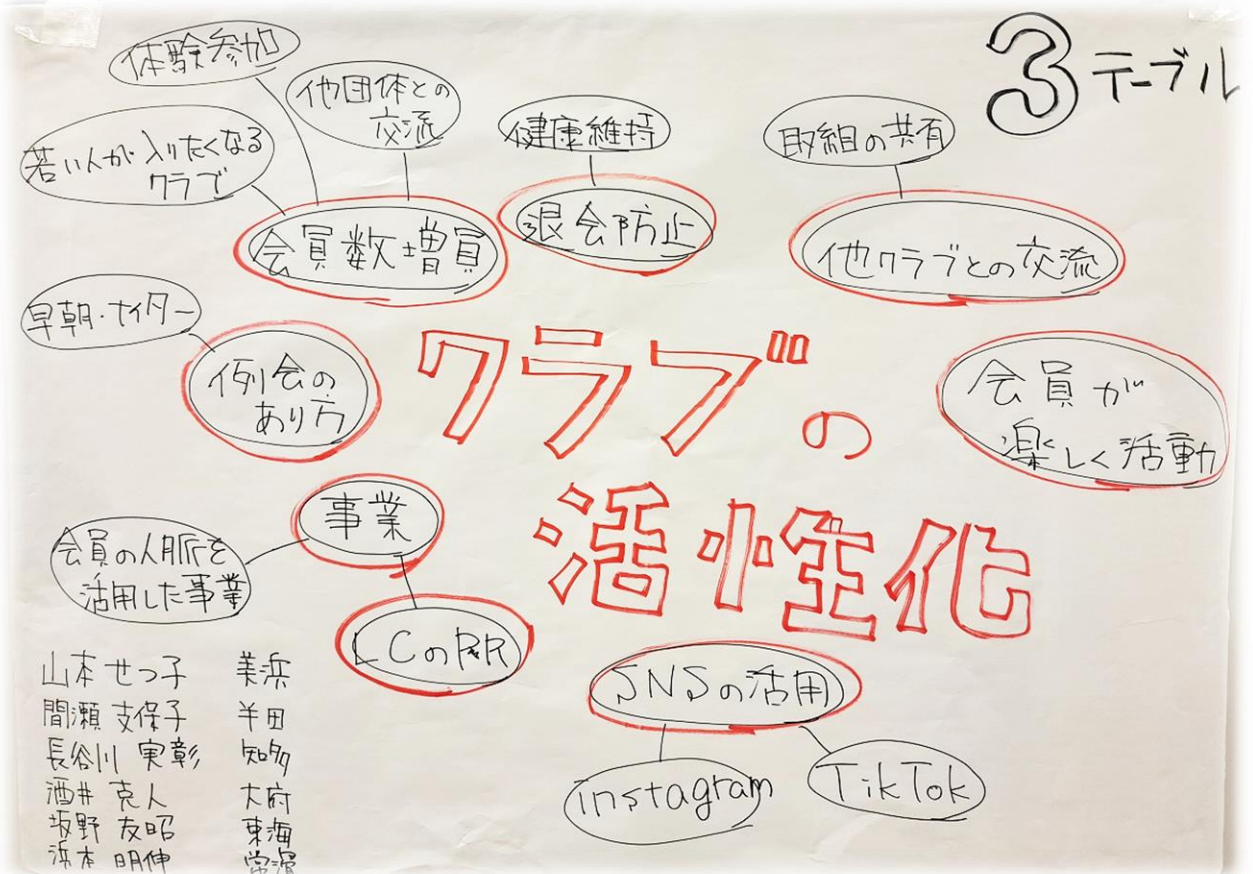 3 テーブル
体験参加
他団体との
交流
若い人が入りたくなる
クラブ
会員数増員
健康維持
退会防止
取組の共有
他クラブとの交流
早朝・ナイター
例会の
あり方
会員が
楽しく活動
クラブの
活性化
事業
会員の人脈を
活用した事業
LCのPR
SNSの活用
instagram
TikTok
山本 せつ子 美浜
間瀬 支保子 半田
長谷川 実彰 知多
酒井 克人 大府
坂野 友昭 東海
浜本 明伸 常滑